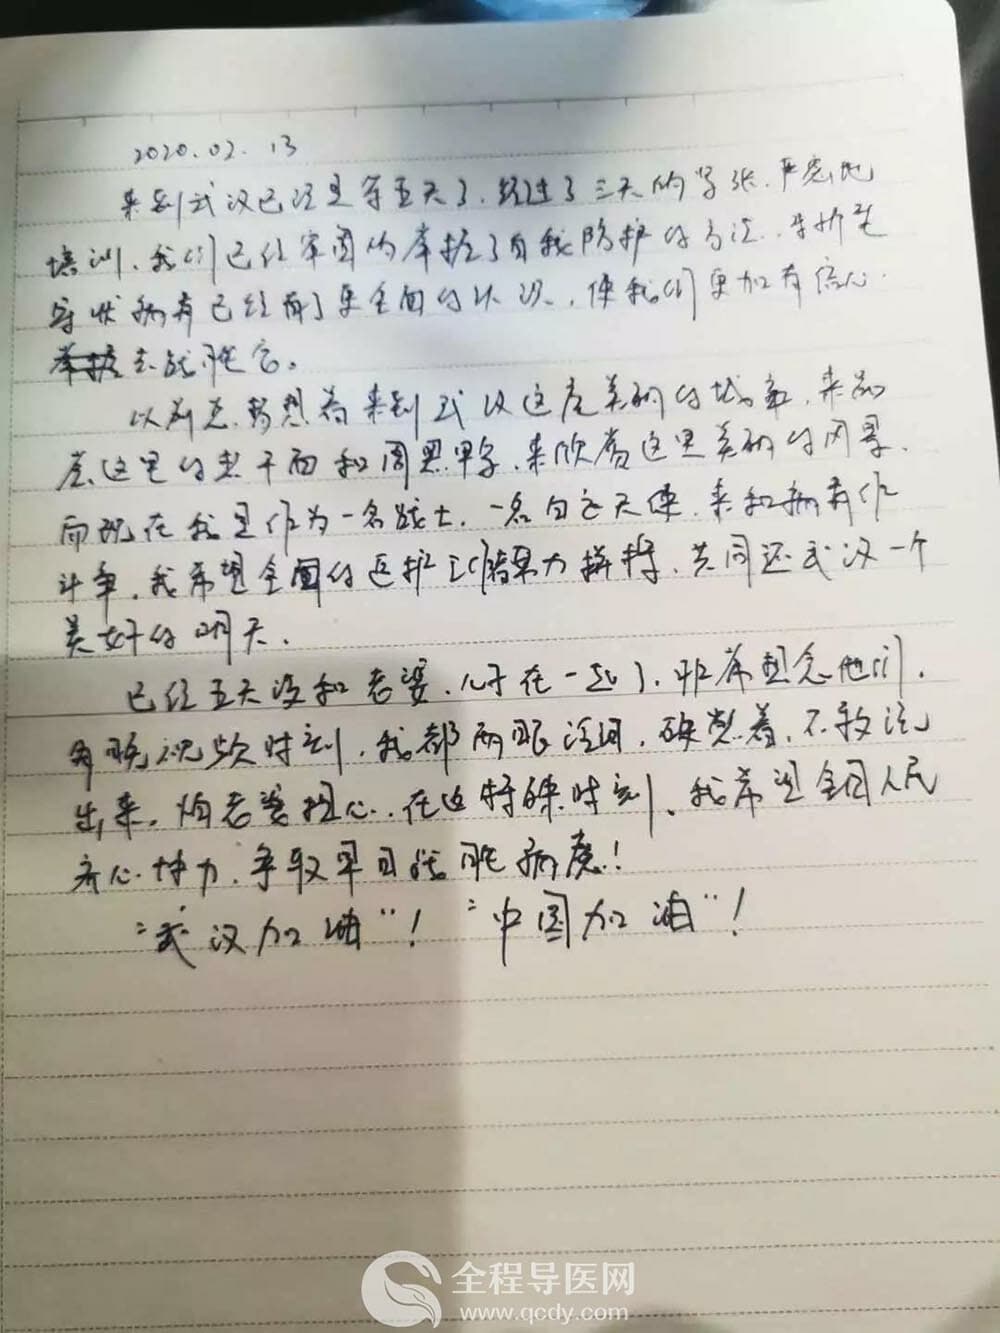 2020.02.13
来到武汉已经是第五天了,经过了三天的紧张、严密地
培训,我们已经牢固的掌握了自我防护的方法,新型
冠状病毒已经有了更全面的认识,使我们更加有信心
去战胜它。
以前总梦想着来到武汉这座美丽的城市,来品
尝这里的热干面和周黑鸭,来欣赏这里美丽的风景,
而现在我是作为一名战士,一名白衣天使,来和病毒作
斗争,我希望全国的医护工作努力拼搏,共同还武汉一个
美好的明天.
已经五天没和老婆、儿子在一起了,非常想念他们,
每晚视频时刻,我都两眼泪,硬憋着,不敢流
出来,怕老婆担心,在这特殊时刻,我希望全国人民
齐心协力,争取早日战胜病魔!
“武汉加油”!“中国加油”!
全程导医网
www.qcdy.com